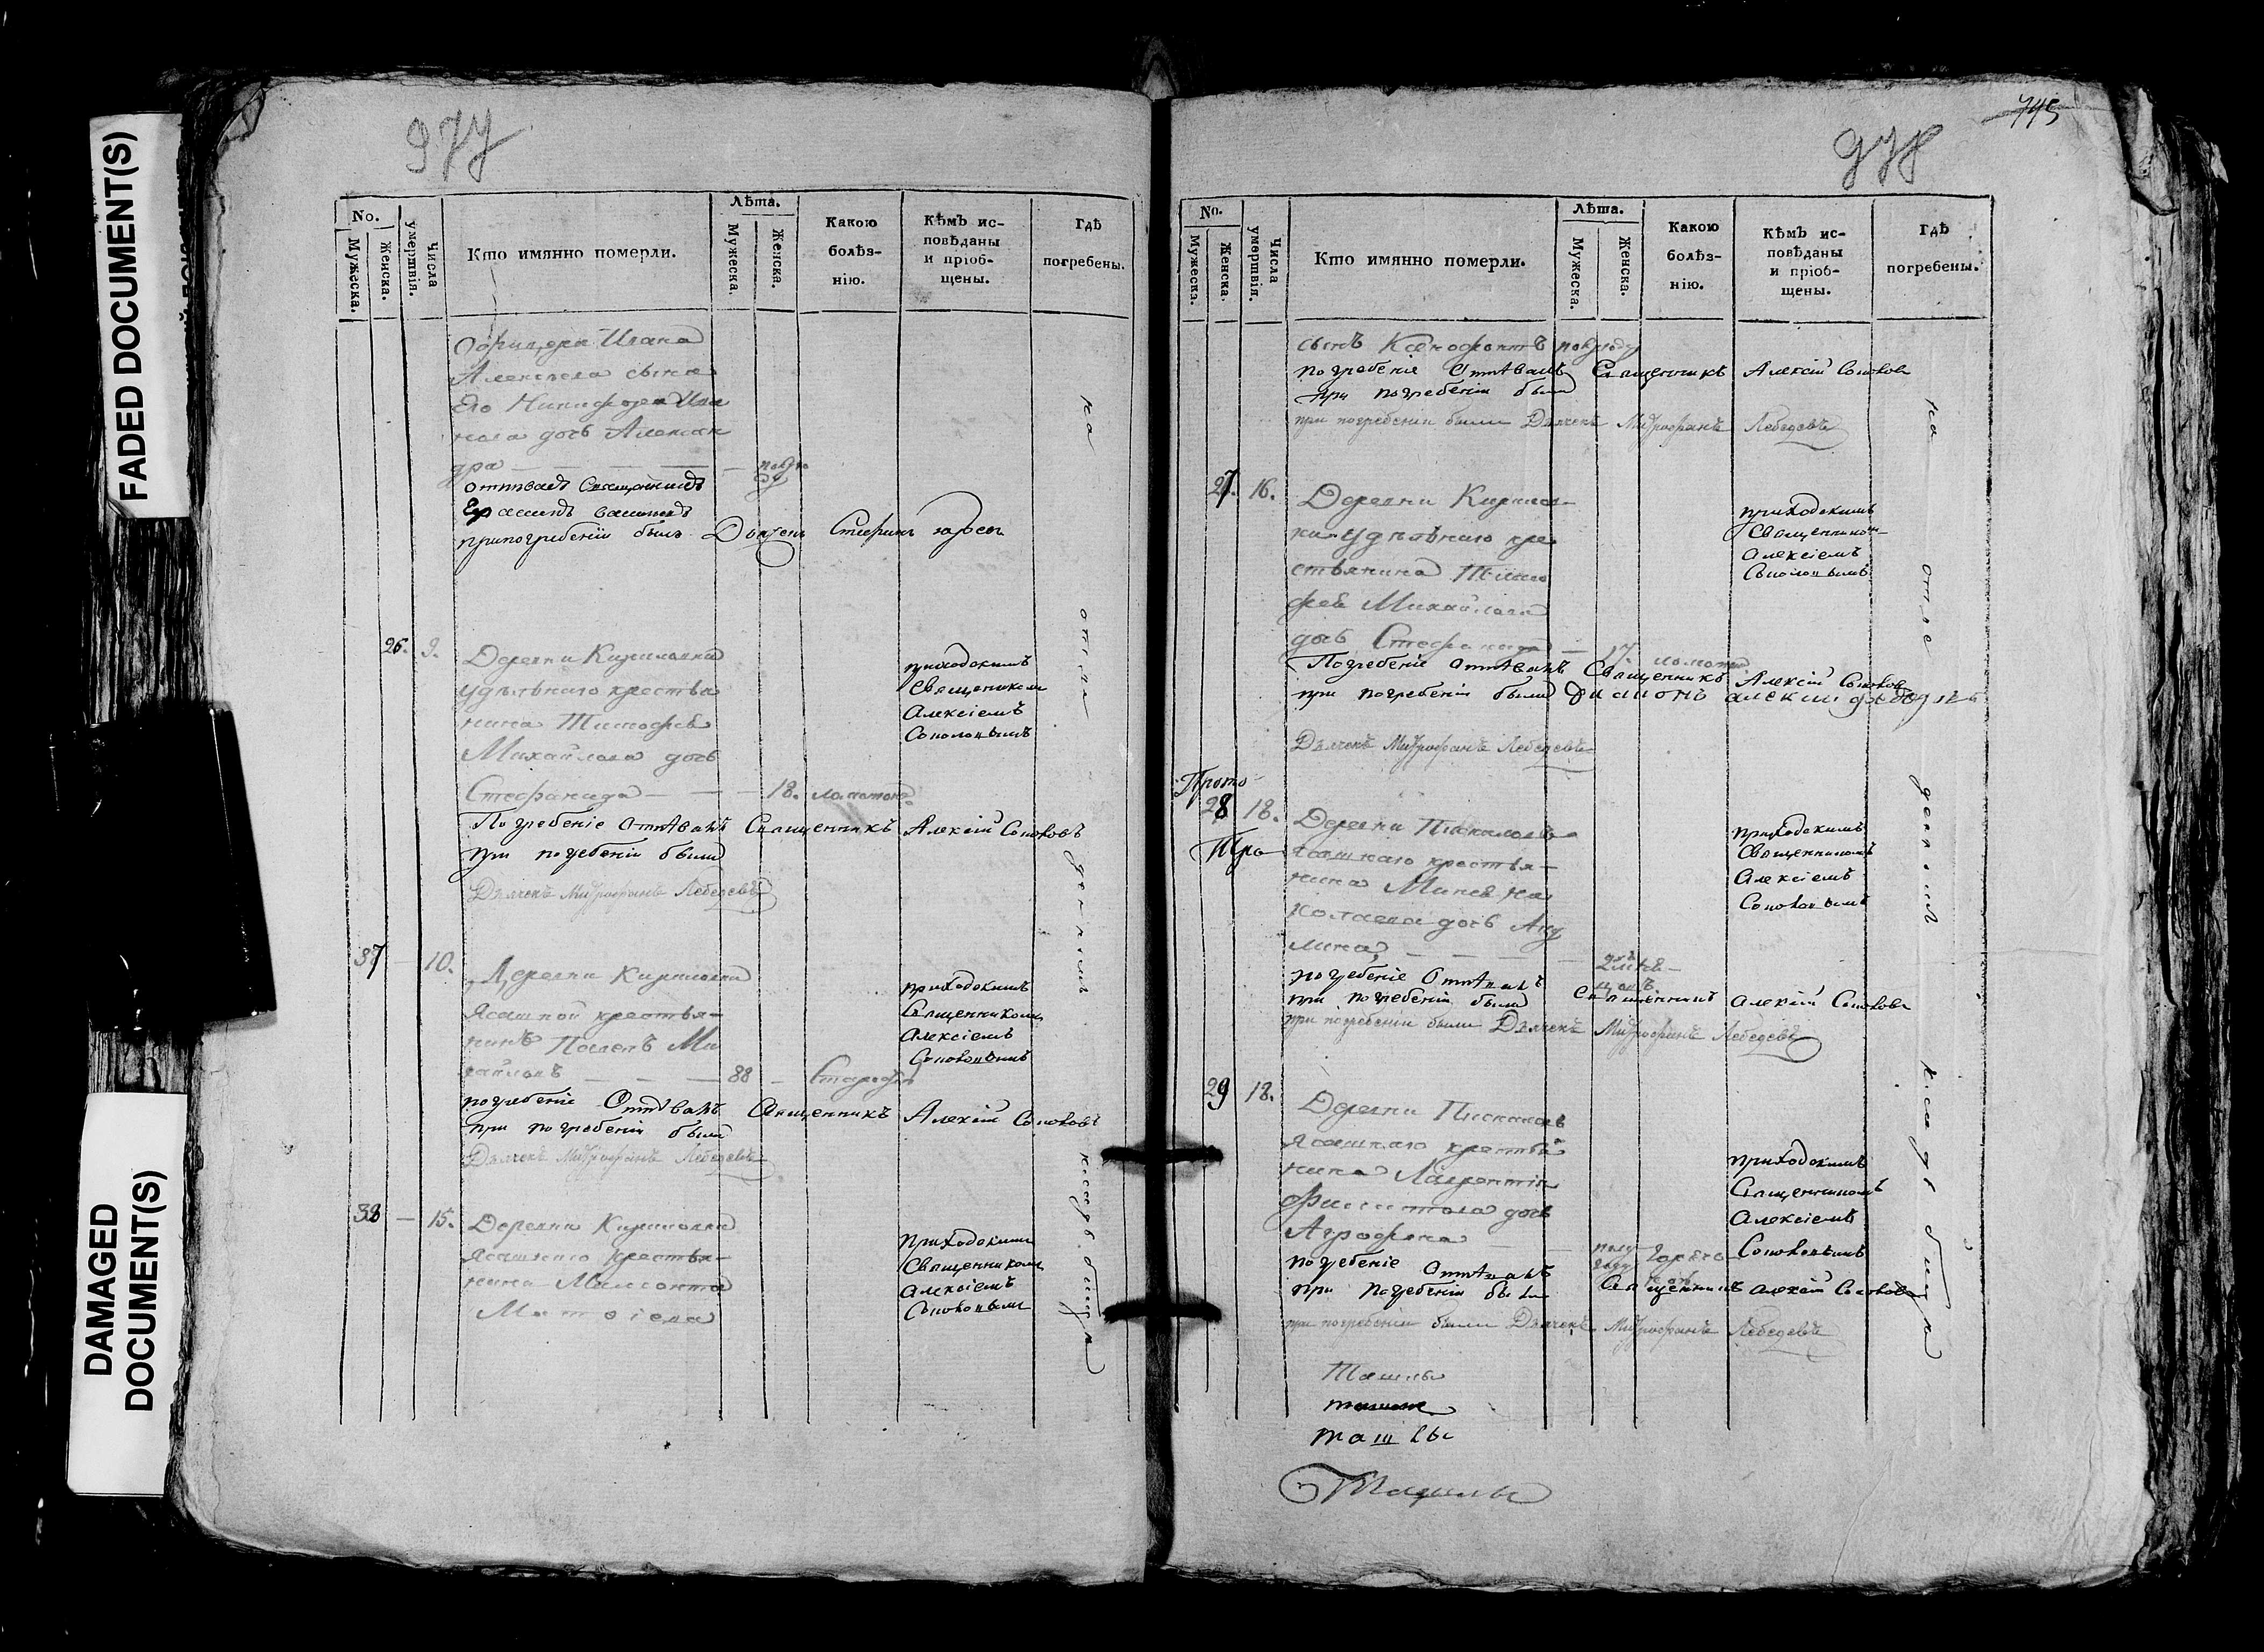 FADED DOCUMENT(S)
DAMAGED
DOCUMENT(S)
977
No.
Мужеска.
Женска.
Числа
умертвія.
Кто имянно померли.
Лѣта.
Мужеска.
Женска.
Какою
болѣз-
нію.
Кѣмъ ис-
повѣданы
и пріоб-
щены.
Гдѣ
погребены.
Офицера Ивана
Алексѣева сына
Его Никифора Ива
нова дочь Алексан
дра — — — — — полго
ду
отпѣвалъ Священникъ
при погребеніи былъ Дьячекъ Стефанъ
на отведенномъ кладбищѣ
26. 9. Деревни Кириловки
удѣльнаго крестья
нина Тимофѣя
Михайлова дочь
Стефанида — — — 18. ломотою
приходскимъ
Священникомъ
Алексіемъ
Соколовымъ
Погребеніе Отпѣвалъ Священникъ Алексій Соколовъ
при погребеніи были
Дьячекъ Митрофанъ Лебедевъ
37 — 10. Деревни Кириловки
Ясашной крестья-
нинъ Павелъ Ми
хайловъ — — — 88 — Старостію
приходскимъ
Священникомъ
Алексіемъ
Соколовымъ
погребеніе Отпѣвалъ Священникъ Алексій Соколовъ
при погребеніи были
Дьячекъ Митрофанъ Лебедевъ
38 — 15. Деревни Кириловки
ясашнаго крестья-
нина
Матвіева
приходскимъ
Священникомъ
Алексіемъ
Соколовымъ
745
978
No.
Мужеска.
Женска.
Числа
умертвія.
Кто имянно померли.
Лѣта.
Мужеска.
Женска.
Какою
болѣз-
нію.
Кѣмъ ис-
повѣданы
и пріоб-
щены.
Гдѣ
погребены.
сынъ Ксенофонтъ полгоду
погребеніе Отпѣвалъ Священникъ Алексій Соколовъ
при погребеніи были
при погребеніи были Дьячекъ Митрофанъ Лебедевъ
на отведенномъ кладбищѣ
27. 16. Деревни Кирилов-
ки удѣльнаго кре
стьянина Тимо
фея Михайлова
дочь Стефанида — 17. ломотою
приходскимъ
Священником-
Алексіемъ
Соколовымъ
Погребеніе Отпѣвалъ Священникъ Алексій Соколовъ
при погребеніи были
Дьячекъ Митрофанъ Лебедевъ
Прото
28 18. Деревни
Про
ясашнаго крестья-
нина Ни
колаева дочь Аку
лина, — — — —
приходскимъ
Священникомъ
Алексіемъ
Соколовымъ
погребеніе Отпѣвалъ Священникъ Алексій Соколовъ
при погребеніи были
при погребеніи были Дьячекъ Митрофанъ Лебедевъ
29 18. Деревни
ясашнаго крестья
нина Лаврентія
Филиппова дочь
Аграфена — — полу
году горячко
приходскимъ
Священникомъ
Алексіемъ
Соколовымъ
погребеніе Отпѣвалъ Священникъ Алексій Соколовъ
при погребеніи были
при погребеніи были Дьячекъ Митрофанъ Лебедевъ
Ташлы
ташлы
Ташлы